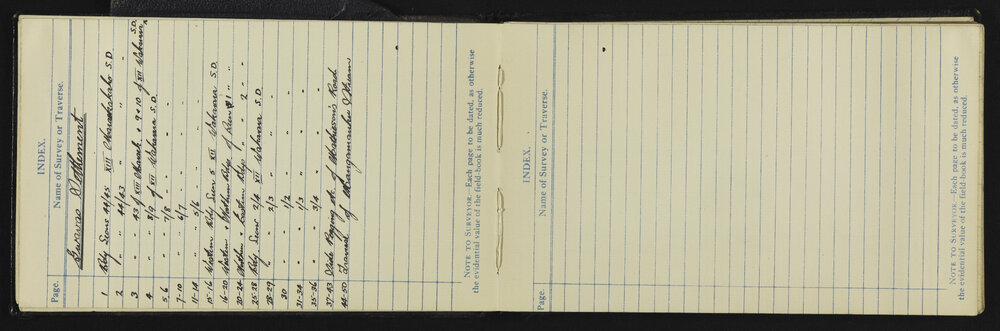 INDEX.
Page. Name of Survey or Traverse.
Settlement
1 Bdy Secns 44/45 XIII S.D.
2 " " 44/43 " "
3 " - 43 of XIII + 9+10 of XII Waharoa S.D.
4 " - 8/9 of XII Waharoa S.D.
5-6 " - 7/8 " -
7-10 " - 6/7 " -
11-14 " - 5/6 " -
15-16 Western Bdy Secn 5 XII Waharoa S.D.
16-20 Western + Northern Bdys of Run 1 "
20-24 Northern + Southern Bdys " " 2 - -
25-28 Bdy Secns 3/4 XII Waharoa S.D.
28-29 " - 2/3 " -
30 " - 1/2 " -
31-34 " - 1/3 " -
35-36 " - 3/4 " -
37-43 Pegging etc. of Road
44-50 Traverse of Stream
NOTE TO SURVEYOR.—Each page to be dated, as otherwise
the evidential value of the field-book is much reduced.
INDEX.
Page. Name of Survey or Traverse.
NOTE TO SURVEYOR.—Each page to be dated, as otherwise
the evidential value of the field-book is much reduced.